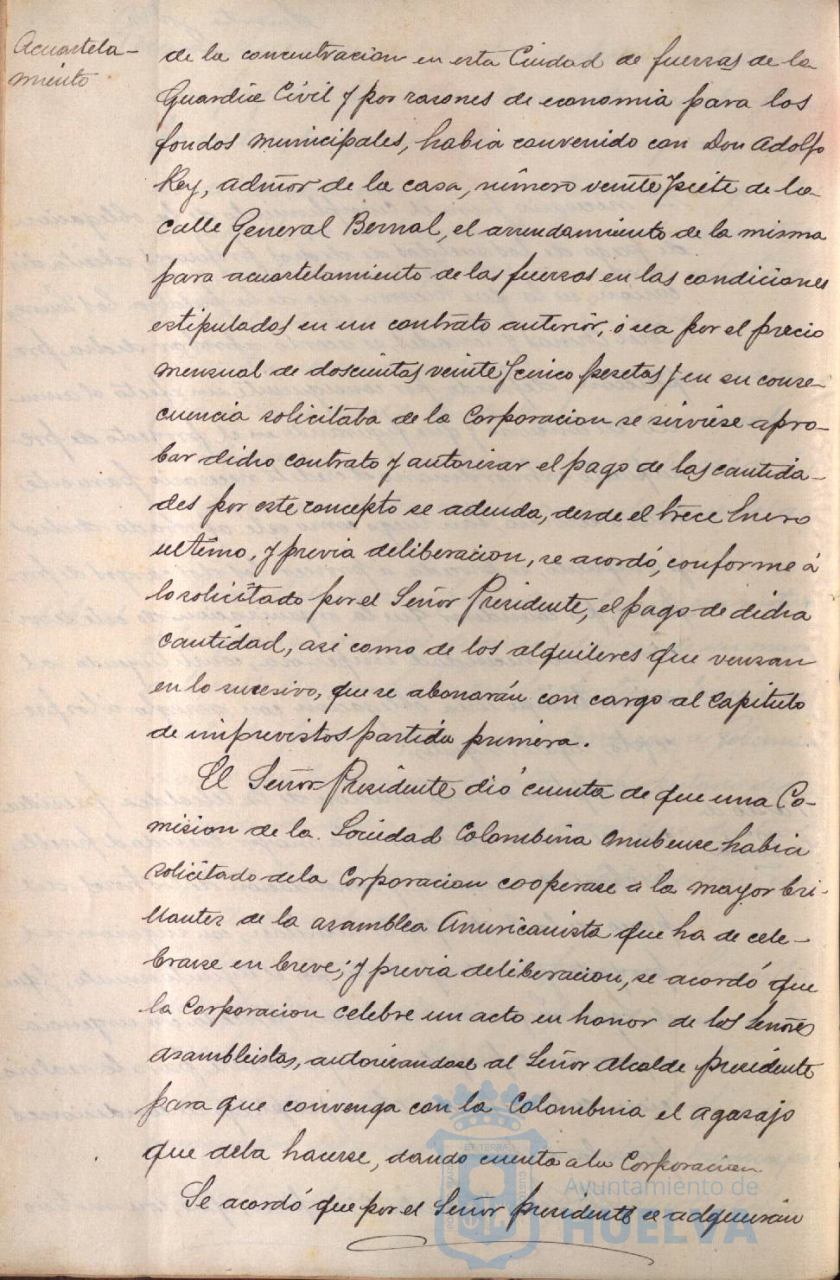 Acuartela-
miento
de la concentracion en esta Ciudad de fuerzas de la
Guardia Civil y por razones de economia para los
fondos municipales, habia convenido con Don Adolfo
Rey, admor de la casa, número veinte y siete de la
calle General Bernal, el arrendamiento de la misma
para acuartelamiento de las fuerzas en las condiciones
estipuladas en un contrato anterior, ó sea por el precio
mensual de doscientas veinte y cinco pesetas y en su conse-
cuencia solicitaba de la Corporacion se sirviese apro-
bar dicho contrato y autorizar el pago de las cantida-
des por este concepto se adeuda, desde el trece Enero
ultimo, y previa deliberacion, se acordó, conforme á
lo solicitado por el Señor Presidente, el pago de dicha
cantidad, asi como de los alquileres que venzan
en lo sucesivo, que se abonarán con cargo al Capitulo
de imprevistos partida primera.
El Señor Presidente dió cuenta de que una Co-
mision de la Sociedad Colombina Onubense habia
solicitado de la Corporacion cooperase á la mayor bri-
llantez de la asamblea Americanista que ha de cele-
brarse en breve; y previa deliberacion, se acordó que
la Corporacion celebre un acto en honor de los Señores
asambleistas, autorizandose al Señor Alcalde presidente
para que convenga con la Colombina el agasajo
que deba hacerse, dando cuenta a la Corporacion
Se acordó que por el Señor presidente se adquirirán
Ayuntamiento de
HUELVA